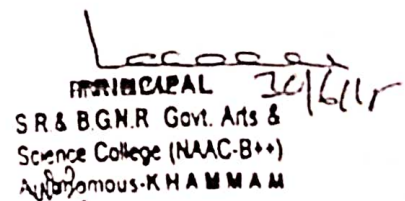 PRINCIPAL
S R & B.G.N.R Govt. Arts &
Science College (NAAC-B++)
Autonomous-KHAMMAM